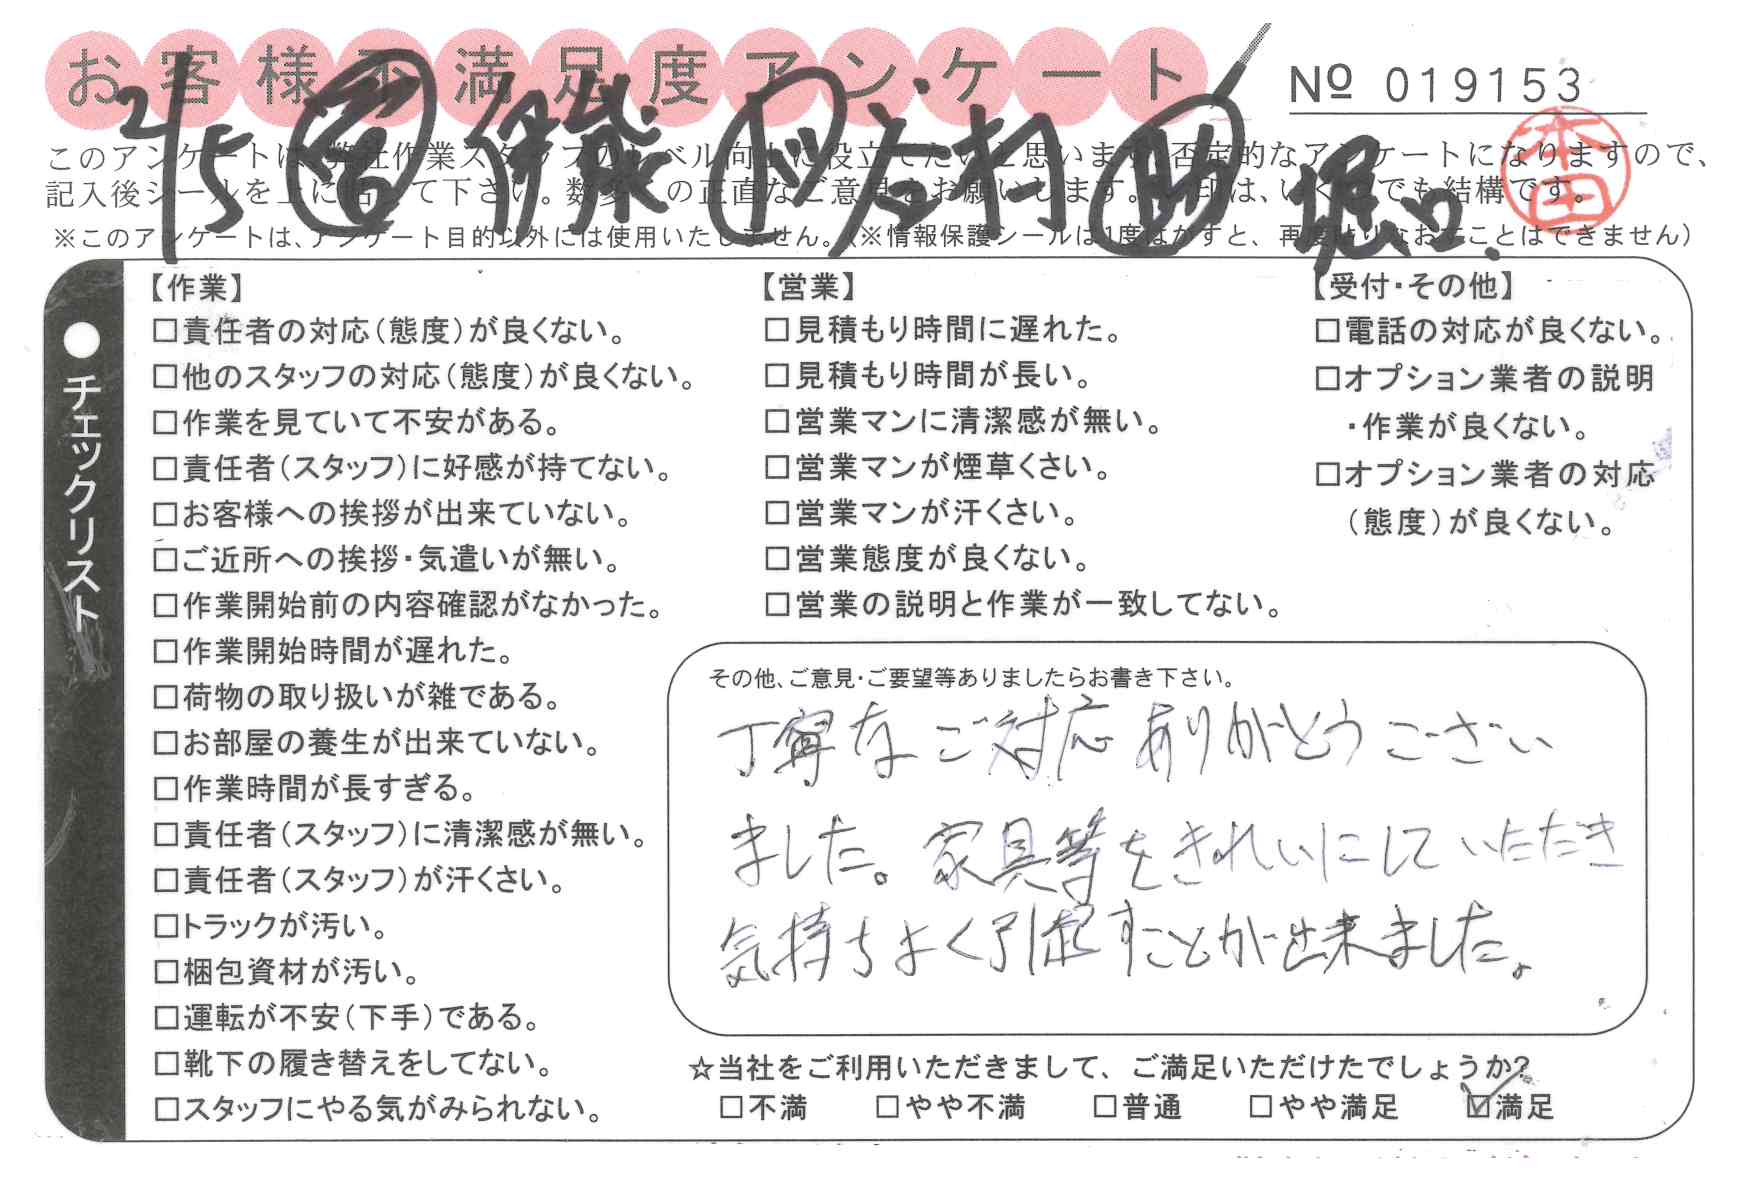 お客様不満足度アンケート
№ 019153
2/5 営 伊藤 ド 谷村 助 堀口.
本田
このアンケートは、弊社作業スタッフのレベル向上に役立てたいと思います。否定的なアンケートになりますので、
記入後シールを上に貼って下さい。数多くの正直なご意見をお願いします。✓印は、いくつでも結構です。
※このアンケートは、アンケート目的以外には使用いたしません。(※情報保護シールは1度はがすと、再度貼りなおすことはできません)
●チェックリスト
【作業】
□責任者の対応(態度)が良くない。
□他のスタッフの対応(態度)が良くない。
□作業を見ていて不安がある。
□責任者(スタッフ)に好感が持てない。
□お客様への挨拶が出来ていない。
□ご近所への挨拶・気遣いが無い。
□作業開始前の内容確認がなかった。
□作業開始時間が遅れた。
□荷物の取り扱いが雑である。
□お部屋の養生が出来ていない。
□作業時間が長すぎる。
□責任者(スタッフ)に清潔感が無い。
□責任者(スタッフ)が汗くさい。
□トラックが汚い。
□梱包資材が汚い。
□運転が不安(下手)である。
□靴下の履き替えをしてない。
□スタッフにやる気がみられない。
【営業】
□見積もり時間に遅れた。
□見積もり時間が長い。
□営業マンに清潔感が無い。
□営業マンが煙草くさい。
□営業マンが汗くさい。
□営業態度が良くない。
□営業の説明と作業が一致してない。
【受付・その他】
□電話の対応が良くない。
□オプション業者の説明
・作業が良くない。
□オプション業者の対応
(態度)が良くない。
その他、ご意見・ご要望等ありましたらお書き下さい。
丁寧なご対応ありがとうござい
ました。家具等をきれいにしていただき
気持ちよく引越すことが出来ました。
☆当社をご利用いただきまして、ご満足いただけたでしょうか?
□不満 □やや不満 □普通 □やや満足 ☑満足